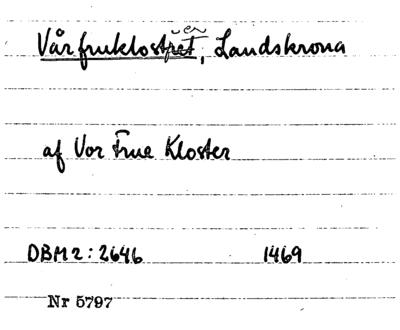 Vårfruklostret, Landskrona
af Vor Frue Kloster
DBM2:2646 1469
Nr 5797